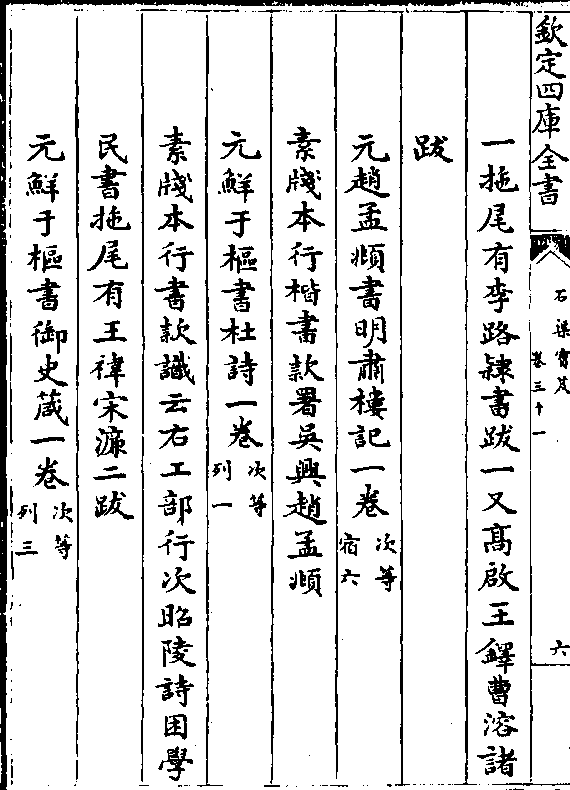 欽定四庫全書
石渠寳笈
卷三十一
六
一拖尾有李路隷書跋一又髙啟王鐸曹溶諸
跋
元趙孟頫書明肅樓記一卷 次等宿六
素牋本行楷書款署吳興趙孟頫
元鮮于樞書杜詩一卷 次等列一
素牋本行書款識云右工部行次昭陵詩困學
民書拖尾有王禕宋濂二跋
元鮮于樞書御史箴一卷 次等列三